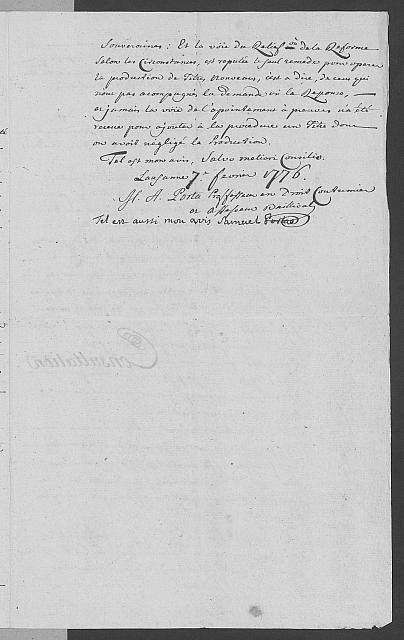 Souveraines. Et la voie du Relief ou de la Reforme
selon les Circonstances, est reputée le seul remede pour operer
la production de Titres nouveaux, c'est a dire, de ceux qui
n'ont pas acompagné la demande où la Reponse,
et jamais la voie de l'apointement à preuves n'a été
recceue pour ajouter à la procedure un Titre dont
on avoit négligé la Production.
Tel est mon avis, Salvo meliori Consilio.
Lausanne 7e. fevrier 1776.
A. Porta Professeur en Droit Coutumier
et assesseur Baillival
Tel est aussi mon avis Samuel Porta
Consultation